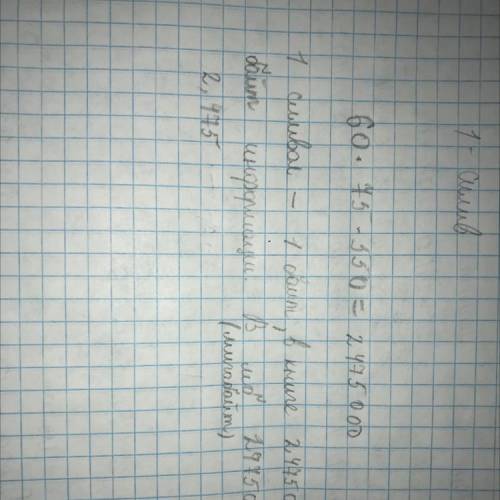 1 - симв
60 · 75 · 550 = 2475000
1 символ – 1 байт, в книге 24750
байт информации. В мб 24750
(мигабайт)
2,475